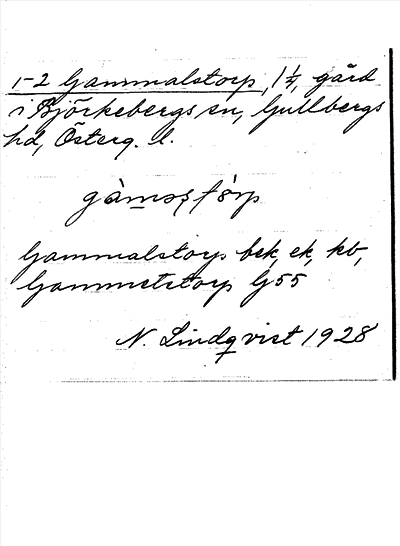 1-2 Gammalstorp, 1 1/4, gård
i Björkebergs sn, Gullbergs
hd, Österg. l.
Gammalstorp bsk, ek, kb,
Gammelstorp G55
N. Lindqvist 1928